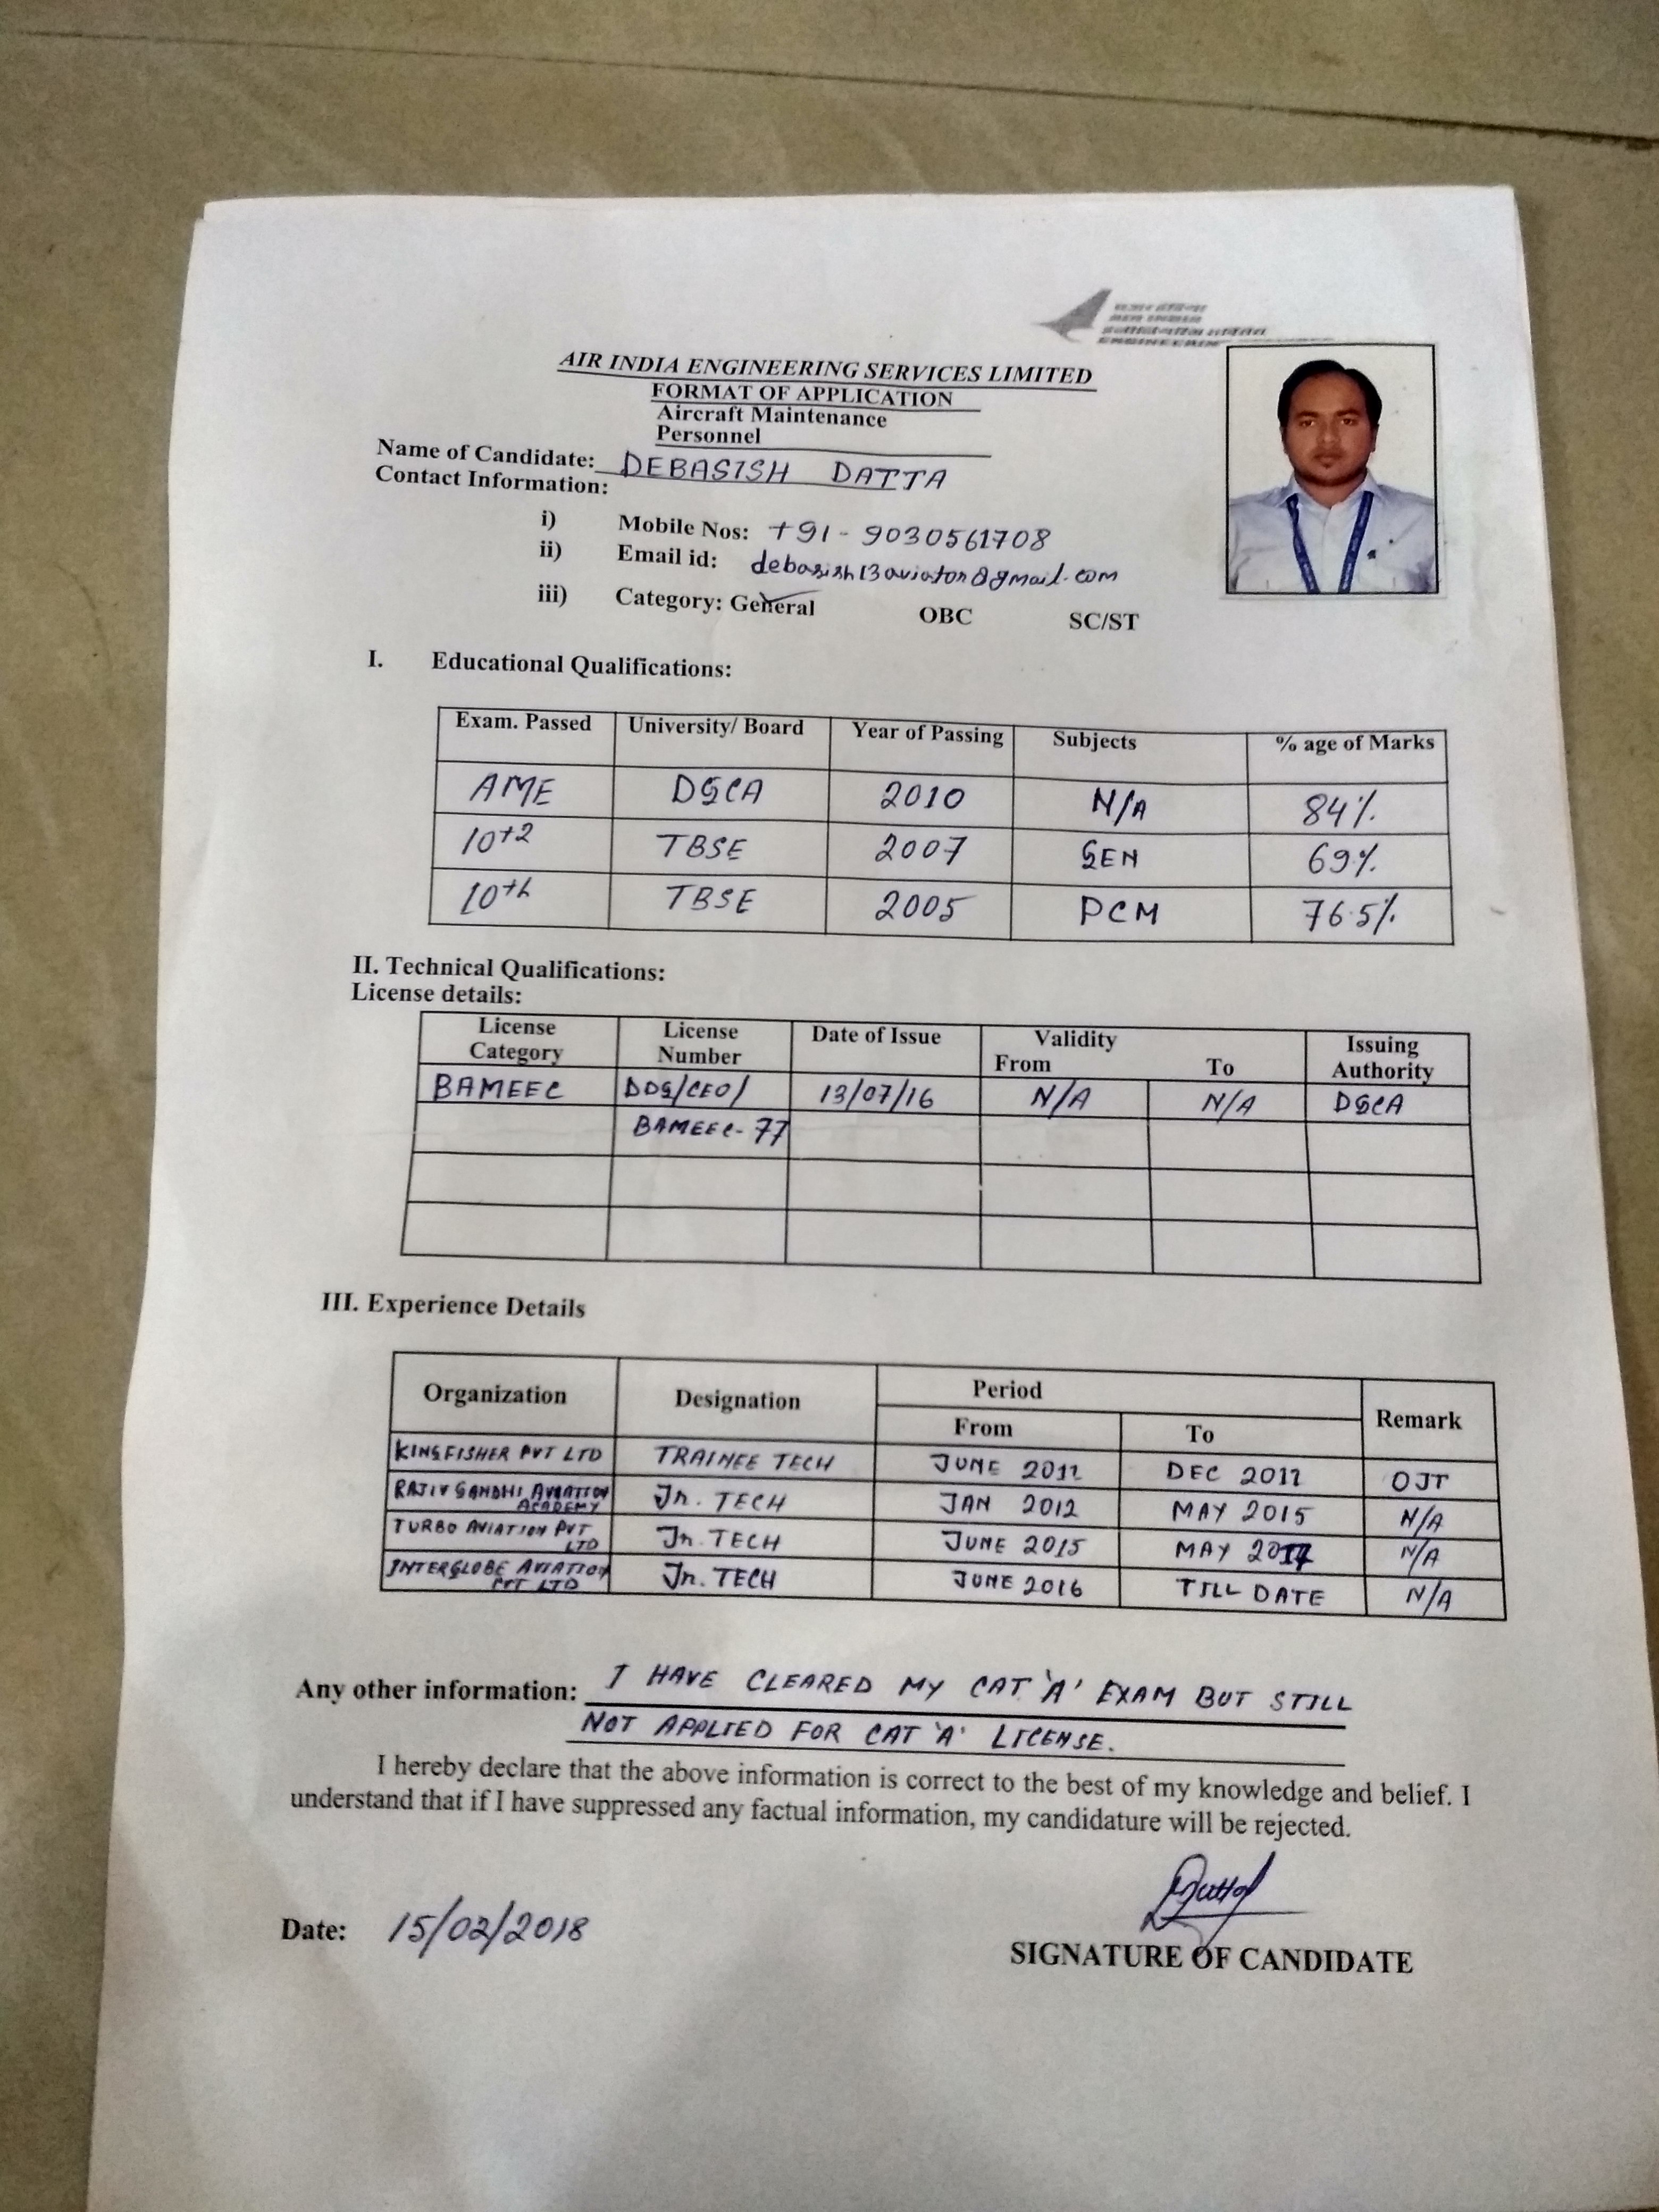 AIR INDIA ENGINEERING SERVICES LIMITED
FORMAT OF APPLICATION
Aircraft Maintenance
Personnel
Name of Candidate: DEBASISH DATTA
Contact Information:
i) Mobile Nos: +91-9030561708
ii) Email id: debasish13aviator@gmail.com
iii) Category: General OBC SC/ST
I. Educational Qualifications:
Exam. Passed University/ Board Year of Passing Subjects % age of Marks
AME DGCA 2010 N/A 84%
10+2 TBSE 2007 GEN 69%
10th TBSE 2005 PCM 76.5%
II. Technical Qualifications:
License details:
License Category License Number Date of Issue Validity From To Issuing Authority
BAMEEC DDG/CEO/ 13/07/16 N/A N/A DGCA
BAMEEC-77
III. Experience Details
Organization Designation Period Remark
From To
KINGFISHER PVT LTD TRAINEE TECH JUNE 2011 DEC 2011 OJT
RAJIV GANDHI AVIATION ACADEMY Jr. TECH JAN 2012 MAY 2015 N/A
TURBO AVIATION PVT LTD Jr. TECH JUNE 2015 MAY N/A
INTERGLOBE AVIATION PVT LTD Jr. TECH JUNE 2016 TILL DATE N/A
Any other information: I HAVE CLEARED MY CAT 'A' EXAM BUT STILL
NOT APPLIED FOR CAT 'A' LICENSE.
I hereby declare that the above information is correct to the best of my knowledge and belief. I
understand that if I have suppressed any factual information, my candidature will be rejected.
Date: 15/02/2018
SIGNATURE OF CANDIDATE